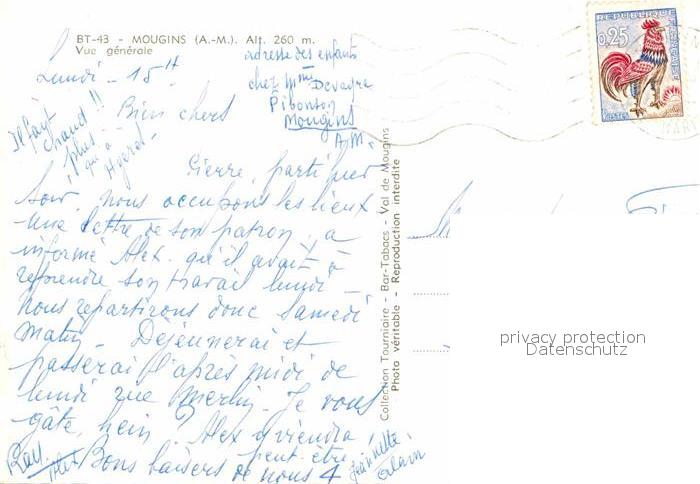 BT-43 - MOUGINS (A.-M.). Alt. 260 m.
Vue générale
Lundi - 15 H
adresse des enfants
chez Mme Devagre
Pibonson
Mougins
A.M.
Il fait
chaud !!
plus
qu'à
Hyères!
Bien chers
Pierre, parti hier
Soir, nous occupons les lieux
une lettre de son patron, a
informé Alex. qu'il avait à
reprendre son travail lundi -
nous repartirons donc samedi
matin - Déjeunerai et
passerai l'après midi de
lundi rue Merlin. Je vous
gâte, hein ! Alex y viendra
peut-être
Bons baisers de nous 4
Ray. Alex
Jeannette
Alain
Collection Tourniaire - Bar-Tabacs - Val de Mougins
Photo véritable - Reproduction interdite
REPUBLIQUE FRANÇAISE
0,25
POSTES
privacy protection
Datenschutz